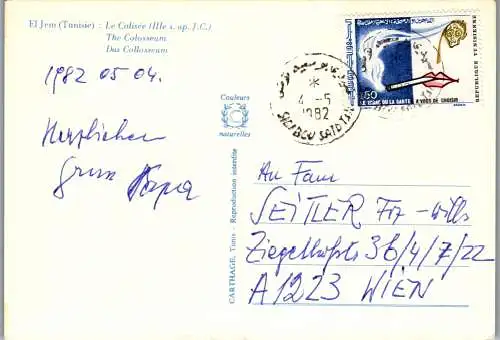 El Jem (Tunisie) : Le Colisée (IIIe s. ap. J.C.)
The Colosseum
Das Collosseum
1982 05 04.
Herzlichen
Gruss Papa
Couleurs
naturelles
CARTHAGE, Tunis - Reproduction interdite
4 -5
1982
SIDI BOU SAID
50
LE TABAC OU LA SANTE A VOUS DE CHOISIR
REPUBLIQUE TUNISIENNE
An Fam
SEITLER
Ziegelhofstr 36/4/7/22
A1223 WIEN